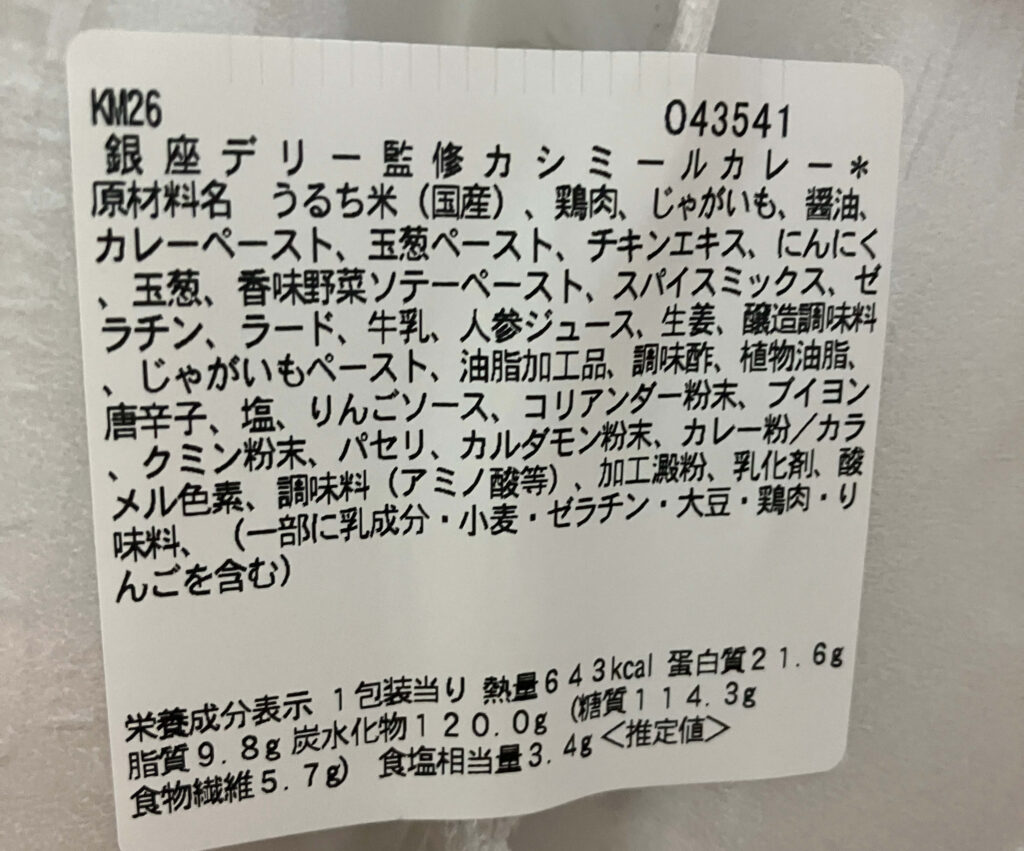 KM26 043541
銀座デリー監修カシミールカレー*
原材料名 うるち米(国産)、鶏肉、じゃがいも、醤油、
カレーペースト、玉葱ペースト、チキンエキス、にんにく
、玉葱、香味野菜ソテーペースト、スパイスミックス、ゼ
ラチン、ラード、牛乳、人参ジュース、生姜、醸造調味料
、じゃがいもペースト、油脂加工品、調味酢、植物油脂、
唐辛子、塩、りんごソース、コリアンダー粉末、ブイヨン
、クミン粉末、パセリ、カルダモン粉末、カレー粉/カラ
メル色素、調味料(アミノ酸等)、加工澱粉、乳化剤、酸
味料、(一部に乳成分・小麦・ゼラチン・大豆・鶏肉・り
んごを含む)
栄養成分表示 1包装当り 熱量643kcal 蛋白質21.6g
脂質9.8g 炭水化物120.0g (糖質114.3g
食物繊維5.7g) 食塩相当量3.4g<推定値>